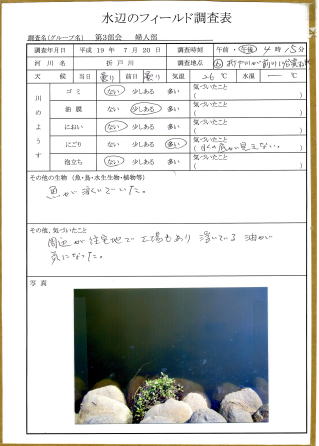 水辺のフィールド調査表
調査名(グループ名) 第3部会 婦人部
調査年月日 平成 19 年 7 月 20 日 調査時刻 午前・午後 4 時 15 分
河川名 折戸川 調査地点
天候 当日 曇り 前日 曇り 気温 26 ℃ 水温 ― ℃
川のようす
ゴミ ない 少しある 多い 気づいたこと ( )
油膜 ない 少しある 多い 気づいたこと ( )
におい ない 少しある 多い 気づいたこと ( )
にごり ない 少しある 多い 気づいたこと (水の底が見えない。)
泡立ち ない 少しある 多い 気づいたこと ( )
その他の生物 (魚・鳥・水生生物・植物等)
魚が泳いでいた。
その他、気づいたこと
周辺が住宅地で工場もあり 浮いている 油が
気になった。
写真